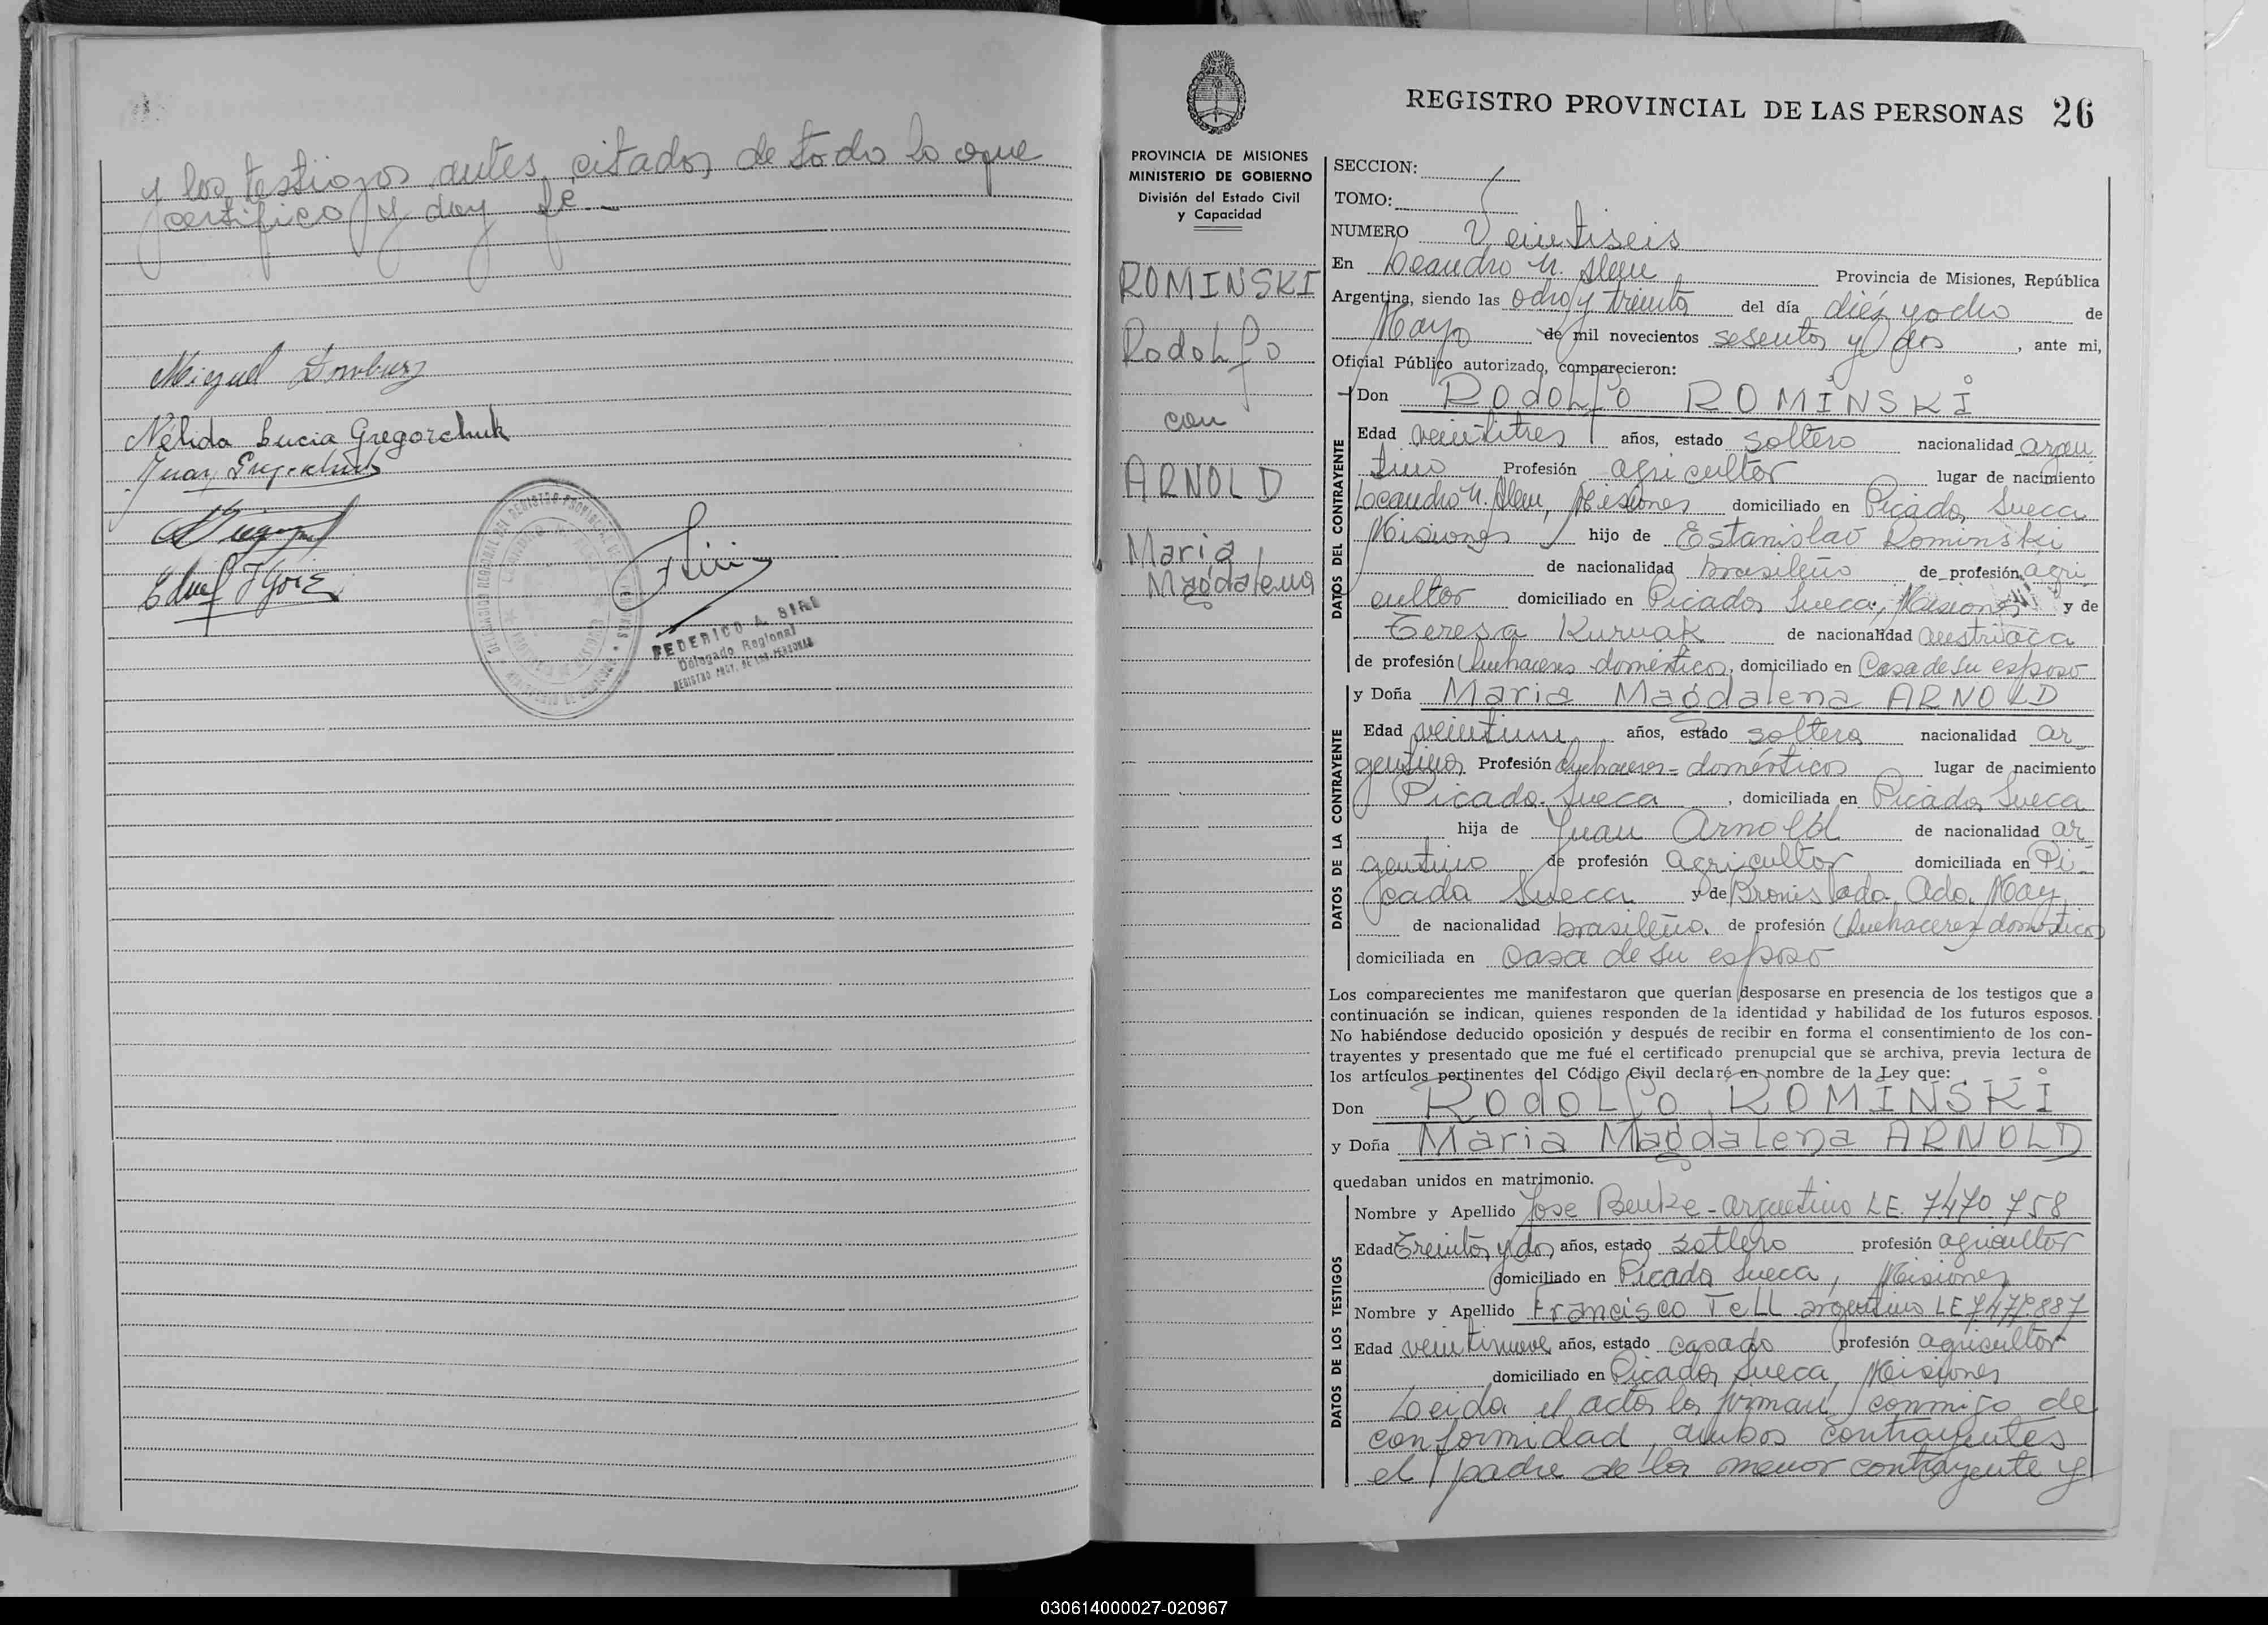 y los testigos antes citados de todo lo que
certifico y doy fé.-
Miguel
Nélida Lucia Gregorchuk
Juan
FEDERICO A. SIRI
Delegado Regional
REGISTRO PROV. DE LAS PERSONAS
REGISTRO PROVINCIAL DE LAS PERSONAS 26
PROVINCIA DE MISIONES
MINISTERIO DE GOBIERNO
División del Estado Civil
y Capacidad
ROMINSKI
Rodolfo
con
ARNOLD
Maria
Magdalena
SECCION:
TOMO:
NUMERO Veintiseis
En Leandro N. Alem Provincia de Misiones, República
Argentina, siendo las ocho y treinta del día diez y ocho de
Mayo de mil novecientos sesenta y dos, ante mi,
Oficial Público autorizado, comparecieron:
DATOS DEL CONTRAYENTE
Don Rodolfo ROMINSKI
Edad veintitres años, estado soltero nacionalidad argen
tino Profesión agricultor lugar de nacimiento
Leandro N. Alem, Misiones domiciliado en Picada Sueca
Misiones hijo de Estanislao Rominski
de nacionalidad brasileño de profesión agri
cultor domiciliado en Picada Sueca, Misiones y de
Teresa Kuruak de nacionalidad austriaca
de profesión Quehaceres domésticos, domiciliado en Casa de su esposo
DATOS DE LA CONTRAYENTE
y Doña Maria Magdalena ARNOLD
Edad veintiun años, estado soltera nacionalidad ar
gentina Profesión Quehaceres-domésticos lugar de nacimiento
Picada Sueca, domiciliada en Picada Sueca
hija de Juan Arnold de nacionalidad ar
gentino de profesión agricultor domiciliada en Pi-
cada Sueca y de Bronislada Ada. May
de nacionalidad brasileña. de profesión Quehaceres domésticos
domiciliada en Casa de su esposo
Los comparecientes me manifestaron que querían desposarse en presencia de los testigos que a
continuación se indican, quienes responden de la identidad y habilidad de los futuros esposos.
No habiéndose deducido oposición y después de recibir en forma el consentimiento de los con-
trayentes y presentado que me fué el certificado prenupcial que se archiva, previa lectura de
los artículos pertinentes del Código Civil declaré en nombre de la Ley que:
Don Rodolfo ROMINSKI
y Doña Maria Magdalena ARNOLD
quedaban unidos en matrimonio.
DATOS DE LOS TESTIGOS
Nombre y Apellido Jose Benke-argentino LE. 7470.758
Edad Treinta y dos años, estado soltero profesión agricultor
domiciliado en Picada Sueca, Misiones
Nombre y Apellido Francisco Tell argentino LE
Edad veintinueve años, estado casado profesión agricultor
domiciliado en Picada Sueca, Misiones
Leida el acta la firman conmigo de
conformidad ambos contrayentes
el padre de la menor contrayente y
030614000027-020967